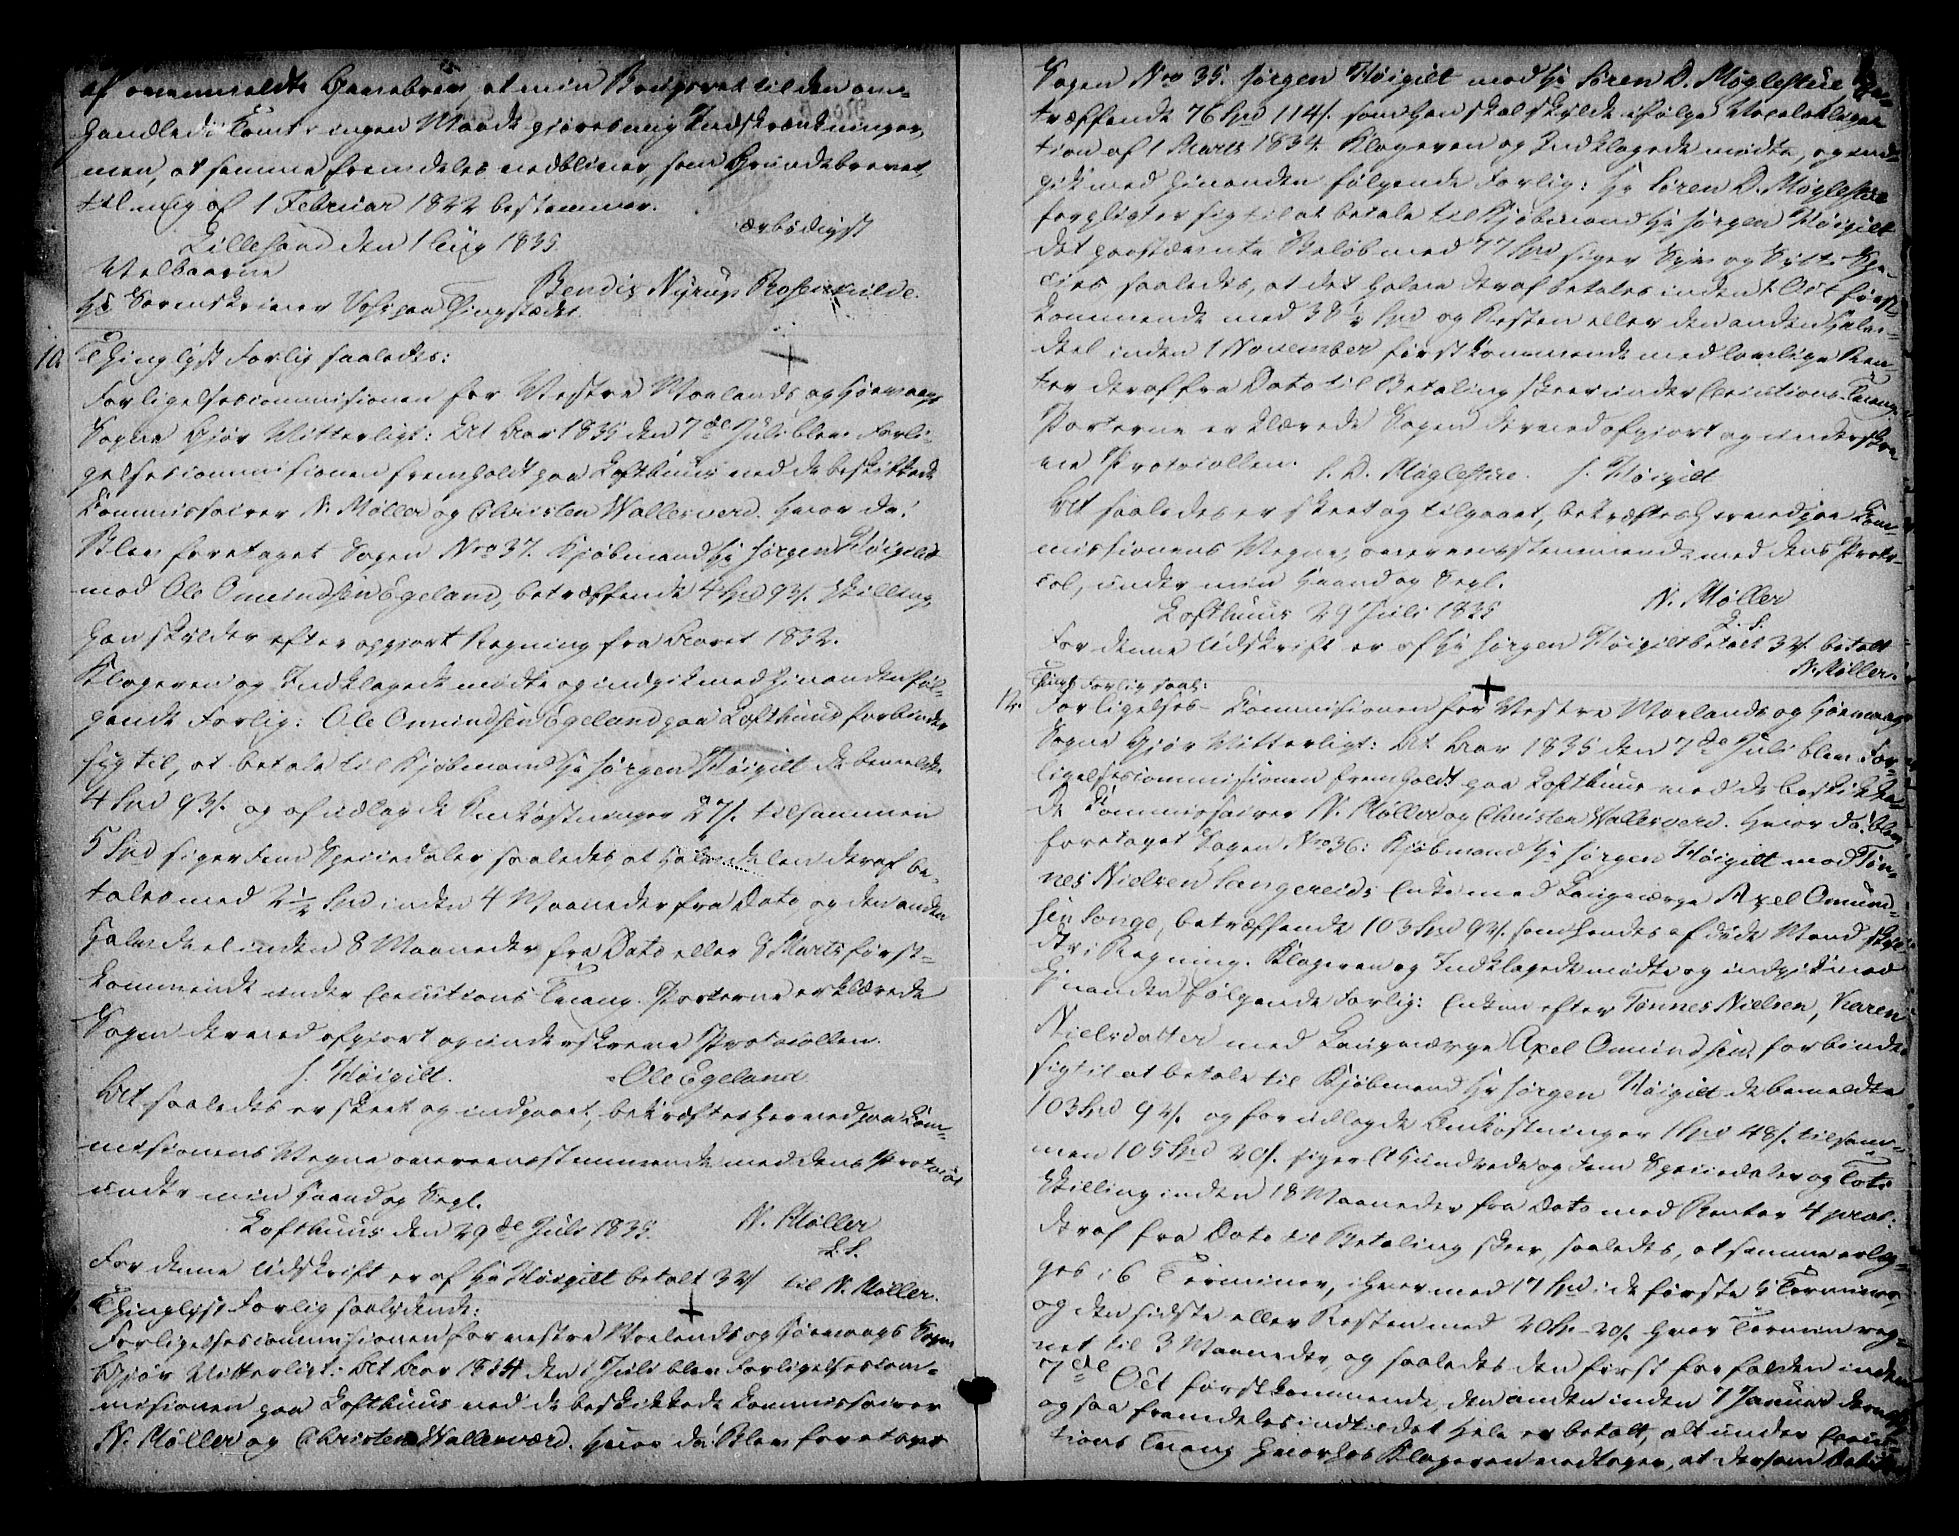 af ommeldte Gavebrev, at min Brugsret til den om-
handlede Tomt i ingen Maade gjøres nug Indskrænkninger,
men, at samme fremdeles vedbliver, som Grundebrevet
til mig af 1 Februar 1822 bestemmer.
Lillesand den 1 Aug 1835.
ærbødigst
Velbaarne
Bendix Nyrup Rosenkilde.
Hr Sorenskriver Voss paa Thingstædet
10. Thinglyst Forlig saaledes:
Forligelsescommissionen for Vestre Moelands og Høevaags
Sogne Gjør Vitterligt: At Aar 1835 den 7de Juli blev Forli-
gelsescommissionen fremholdt paa Lofthuus med de beskikkede
Commissairer N. Møller og Christen Wallesverd. Hvor da:
Blev foretaget Sagen Nro 37. Kjøbmand Hr Jørgen Høigilt
mod Ole Omundsen Egeland, betræffende 4 Spd 93 s. Skilling,
han skylder efter opgjort Regning fra Aaret 1832.
Klageren og Indklagede mødte og indgik med hinanden føl-
gende Forlig: Ole Omundsen Egeland paa Lofthuus forbinder
sig til, at betale til Kjøbmand Hr Jørgen Høigilt de bemeldte
4 Spd 93 s. og af udlagde Omkostninger 27 s. tilsammen
5 Spd siger Fem Speciedaler saaledes at Halvdelen deraf be-
tales med 2½ Spd inden 4 Maaneder fra Dato, og den anden
Halvdeel inden 8 Maaneder fra Dato eller 8 Marts først-
kommende under Executions Tvang. Parterne erklærede
Sagen dermed afgjort og underskreve Protocollen.
J. Høigilt. Ole Egeland
At saaledes er skeet og indgaaet, bekræftes hermed paa Com-
missionens Vegne overeensstemmende med dens Protocol
under min Haand og Segl.
Lofthuus den 29de Juli 1835. N. Møller
L. S.
For denne Udskrift er af Hr Høigilt betalt 32 s til N. Møller.
Thinglyst Forlig saalydende:
Forligelsescommissionen for vestre Moelands og Høevaags Sogne
Gjør Vitterligt: At Aar 1834 den 1 Juli blev Forligelsescom-
misionen paa Lofthuus med de beskikkede Commissairer
N. Møller og Christen Wallesværd. Hvor da: Blev foretaget
Sagen Nro 35. Jørgen Høigilt mod Hr Søren D. Møglestue be-
træffende 76 Spd 114 s. som han skal skylde ifølge Vexelobliga-
tion af 1 Marts 1834. Klageren og Indklagede mødte, og ind-
gik med hinanden følgende Forlig: Hr Søren D. Møglestue
forpligter sig til at betale til Kjøbmand Hr Jørgen Høigilt
det paastævnte Beløb med 77 Spd siger Syv og Sytti Spe-
cies, saaledes, at det halve deraf betales inden 1 Oct først-
kommende med 38½ Spd og Resten eller den anden Halv-
deel inden 1 November førstkommende med lovlige Ren-
ter deraf fra Dato til Betaling skeer under Executions Tvang.
Parterne erklærede Sagen dermed afgjort og underskre-
ve Protocollen. S. D. Møglestue. J. Høigilt
At saaledes er skeet og tilgaaet, bekræftes hermed paa Com-
missionens Vegne, overeensstemmende med dens Proto-
col, under min Haand og Segl.
Lofthuus 29 Juli 1835 N. Møller
L. S.
For denne Udskrift er af Hr Jørgen Høigilt betalt 32 s. betalt
N. Møller.
Thingl Forlig saal:
12. Forligelses-Commisionen for Vestre Moelands og Høevaags
Sogne Gjør Vitterligt: At Aar 1835 den 7de Juli blev For-
ligelsescommissionen fremholdt paa Lofthuus med de beskikke-
de Commissairer N. Møller og Christen Wallesverd. Hvor da: blev
foretaget Sagen Nro 36: Kjøbmand Hr Jørgen Høigilt mod Tøn-
nes Nielsen Sangereids Enke med Laugværge Axel Omund-
sen Songe, betræffende 103 Spd 92 s. som hendes afdøde Mand skyl-
der i Regning. Klageren og Indklagede mødte og indgik med
hinanden følgende Forlig: Enken efter Tønnes Nielsen, Karen
Nielsdatter med Laugværge Axel Omundsen forbinder
sig til at betale til Kjøbmand Hr Jørgen Høigilt de bemeldte
103 Spd 92 s. og for udlagde Omkostninger 1 Spd 48 s. tilsam-
men 105 Spd 20 s. siger Et Hundrede og Fem Speciedaler og Tove
Skilling inden 18 Maaneder fra Dato med Renter 4 proc:
deraf fra Dato til Betaling skeer, saaledes, at samme erlæg-
ges i 6 Terminer, i hver med 17 Spd i de første 5 Terminer,
og den sidste eller Resten med 20 Sp. 20 s. hver Termin reg-
net til 3 Maaneder, og saaledes den først forfalden inden
7de Oct førstkommende, den anden inden 7 Januar dernæst
og saa fremdeles indtil det Hele er betalt, alt under Execu-
tions Tvang hvorhos Klageren vedtager, at dersom